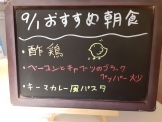 9/1 おすすめ朝食
・酢鶏
・ベーコンとキャベツのブラックペッパー炒め
・キーマカレー風パスタ